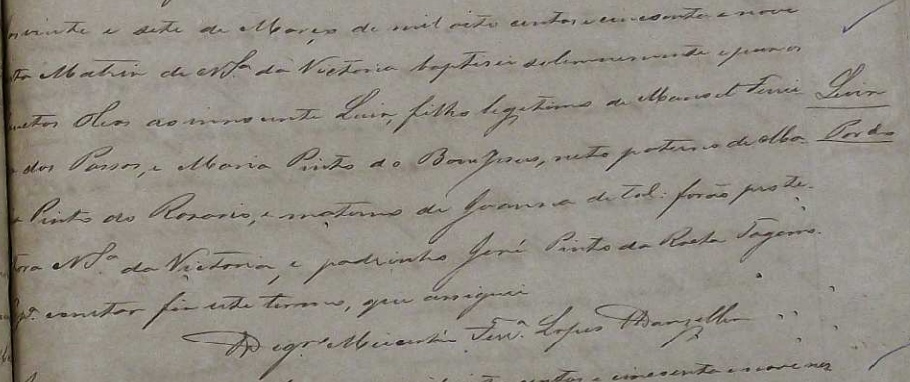 vinte e sete de Março de mil oito centos e cincoenta e nove
Matriz de N. Sª da Victoria baptisei solemnemente e puz os
Santos Oleos ao innocente Luis, filho legitimo de Manoel Ferrei
Luis
dos Passos, e Maria Pinto do Bom Jesus, neto paterno de Ma
Pardo
Pinto do Rosario, e materno de Joanna de tal: forão prote
tora N. Sª da Victoria, e padrinho José Pinto da Rocha
pª constar fiz este termo, que assignei
O Vigrº Ferª Lopes
centos e cincoenta e nove nes